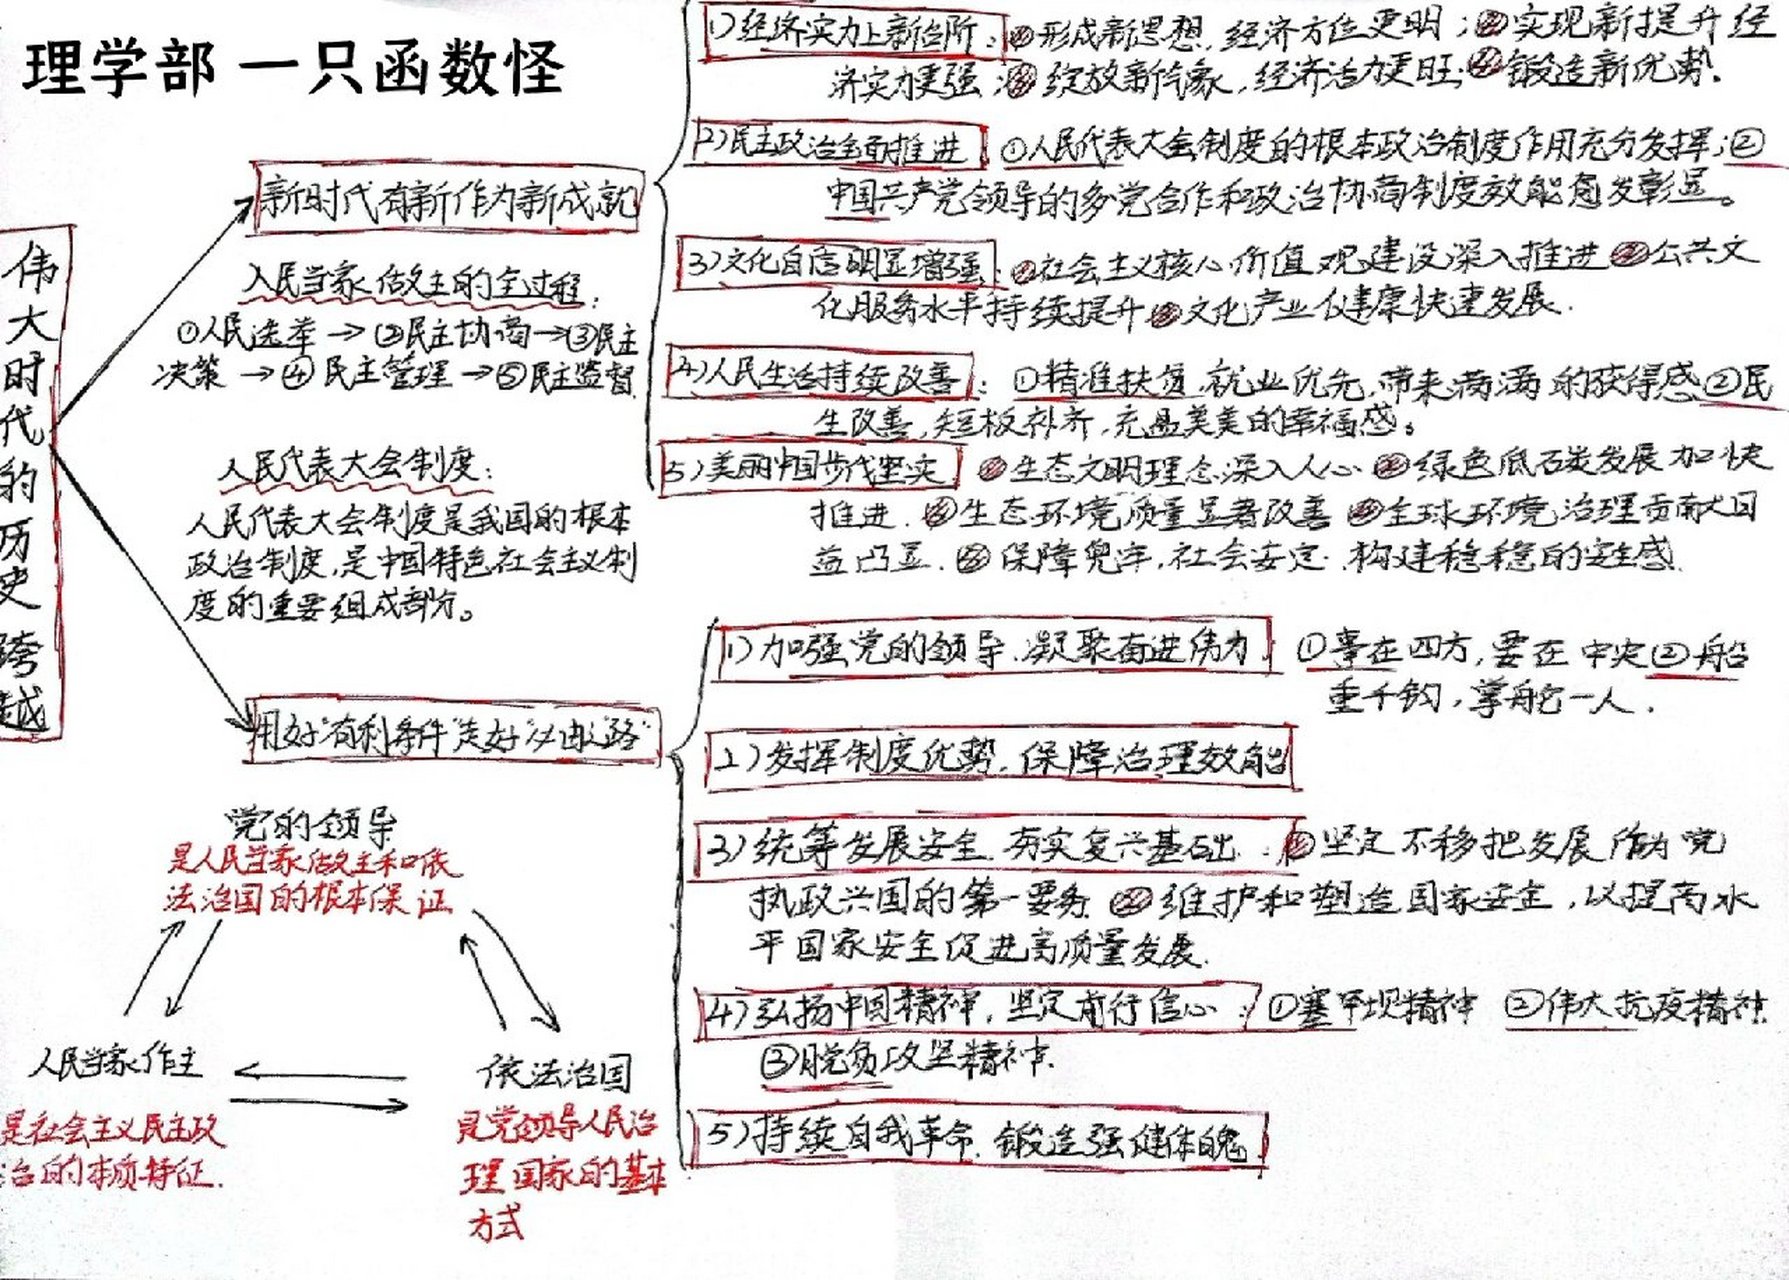 理学部 一只函数怪
伟大时代的历史跨越
新时代有新作为新成就
人民当家做主的全过程:
①人民选举→②民主协商→③民主
决策→④民主管理→⑤民主监督
人民代表大会制度:
人民代表大会制度是我国的根本
政治制度,是中国特色社会主义制
度的重要组成部分。
1)经济实力上新台阶:①形成新思想,经济方位更明;②实现新提升经
济实力更强;③绽放新气象,经济活力更旺;④锻造新优势.
2)民主政治全面推进 ①人民代表大会制度的根本政治制度作用充分发挥;②
中国共产党领导的多党合作和政治协商制度效能愈发彰显。
3)文化自信明显增强:①社会主义核心价值观建设深入推进②公共文
化服务水平持续提升③文化产业健康快速发展.
4)人民生活持续改善:①精准扶贫,就业优先,带来满满的获得感②民
生改善,短板补齐,充盈美美的幸福感。
5)美丽中国步伐坚实 ①生态文明理念深入人心②绿色低碳发展加快
推进.③生态环境质量显著改善④全球环境治理贡献日
益凸显.⑤保障兜牢,社会安定.构建稳稳的安全感
用好"有利条件"走好"必由之路"
1)加强党的领导.凝聚奋进伟力 ①事在四方,要在中央②船
重千钧,掌舵一人.
2)发挥制度优势.保障治理效能
3)统筹发展安全.夯实复兴基础:①坚定不移把发展作为党
执政兴国的第一要务②维护和塑造国家安全,以提高水
平国家安全促进高质量发展.
4)弘扬中国精神,坚定前行信心:①塞罕坝精神 ②伟大抗疫精神.
③脱贫攻坚精神.
5)持续自我革命.锻造强健体魄
党的领导
是人民当家做主和依
法治国的根本保证
人民当家作主
是社会主义民主政
治的本质特征.
依法治国
是党领导人民治
理国家的基本
方式